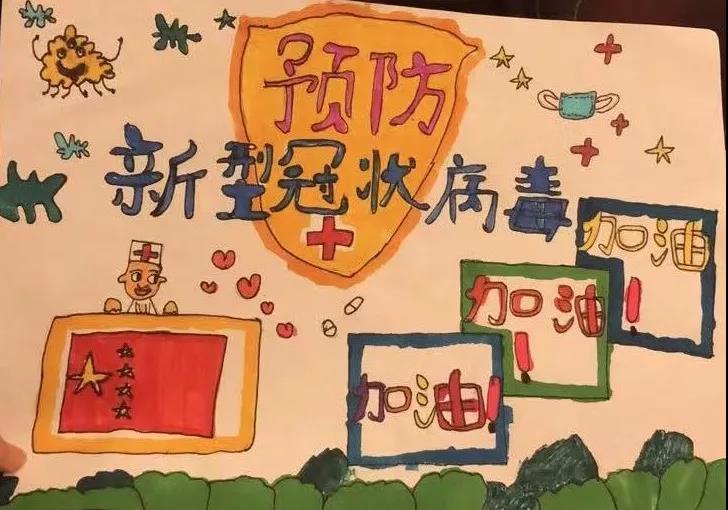 预防
新型冠状病毒
加油!
加油!
加油!